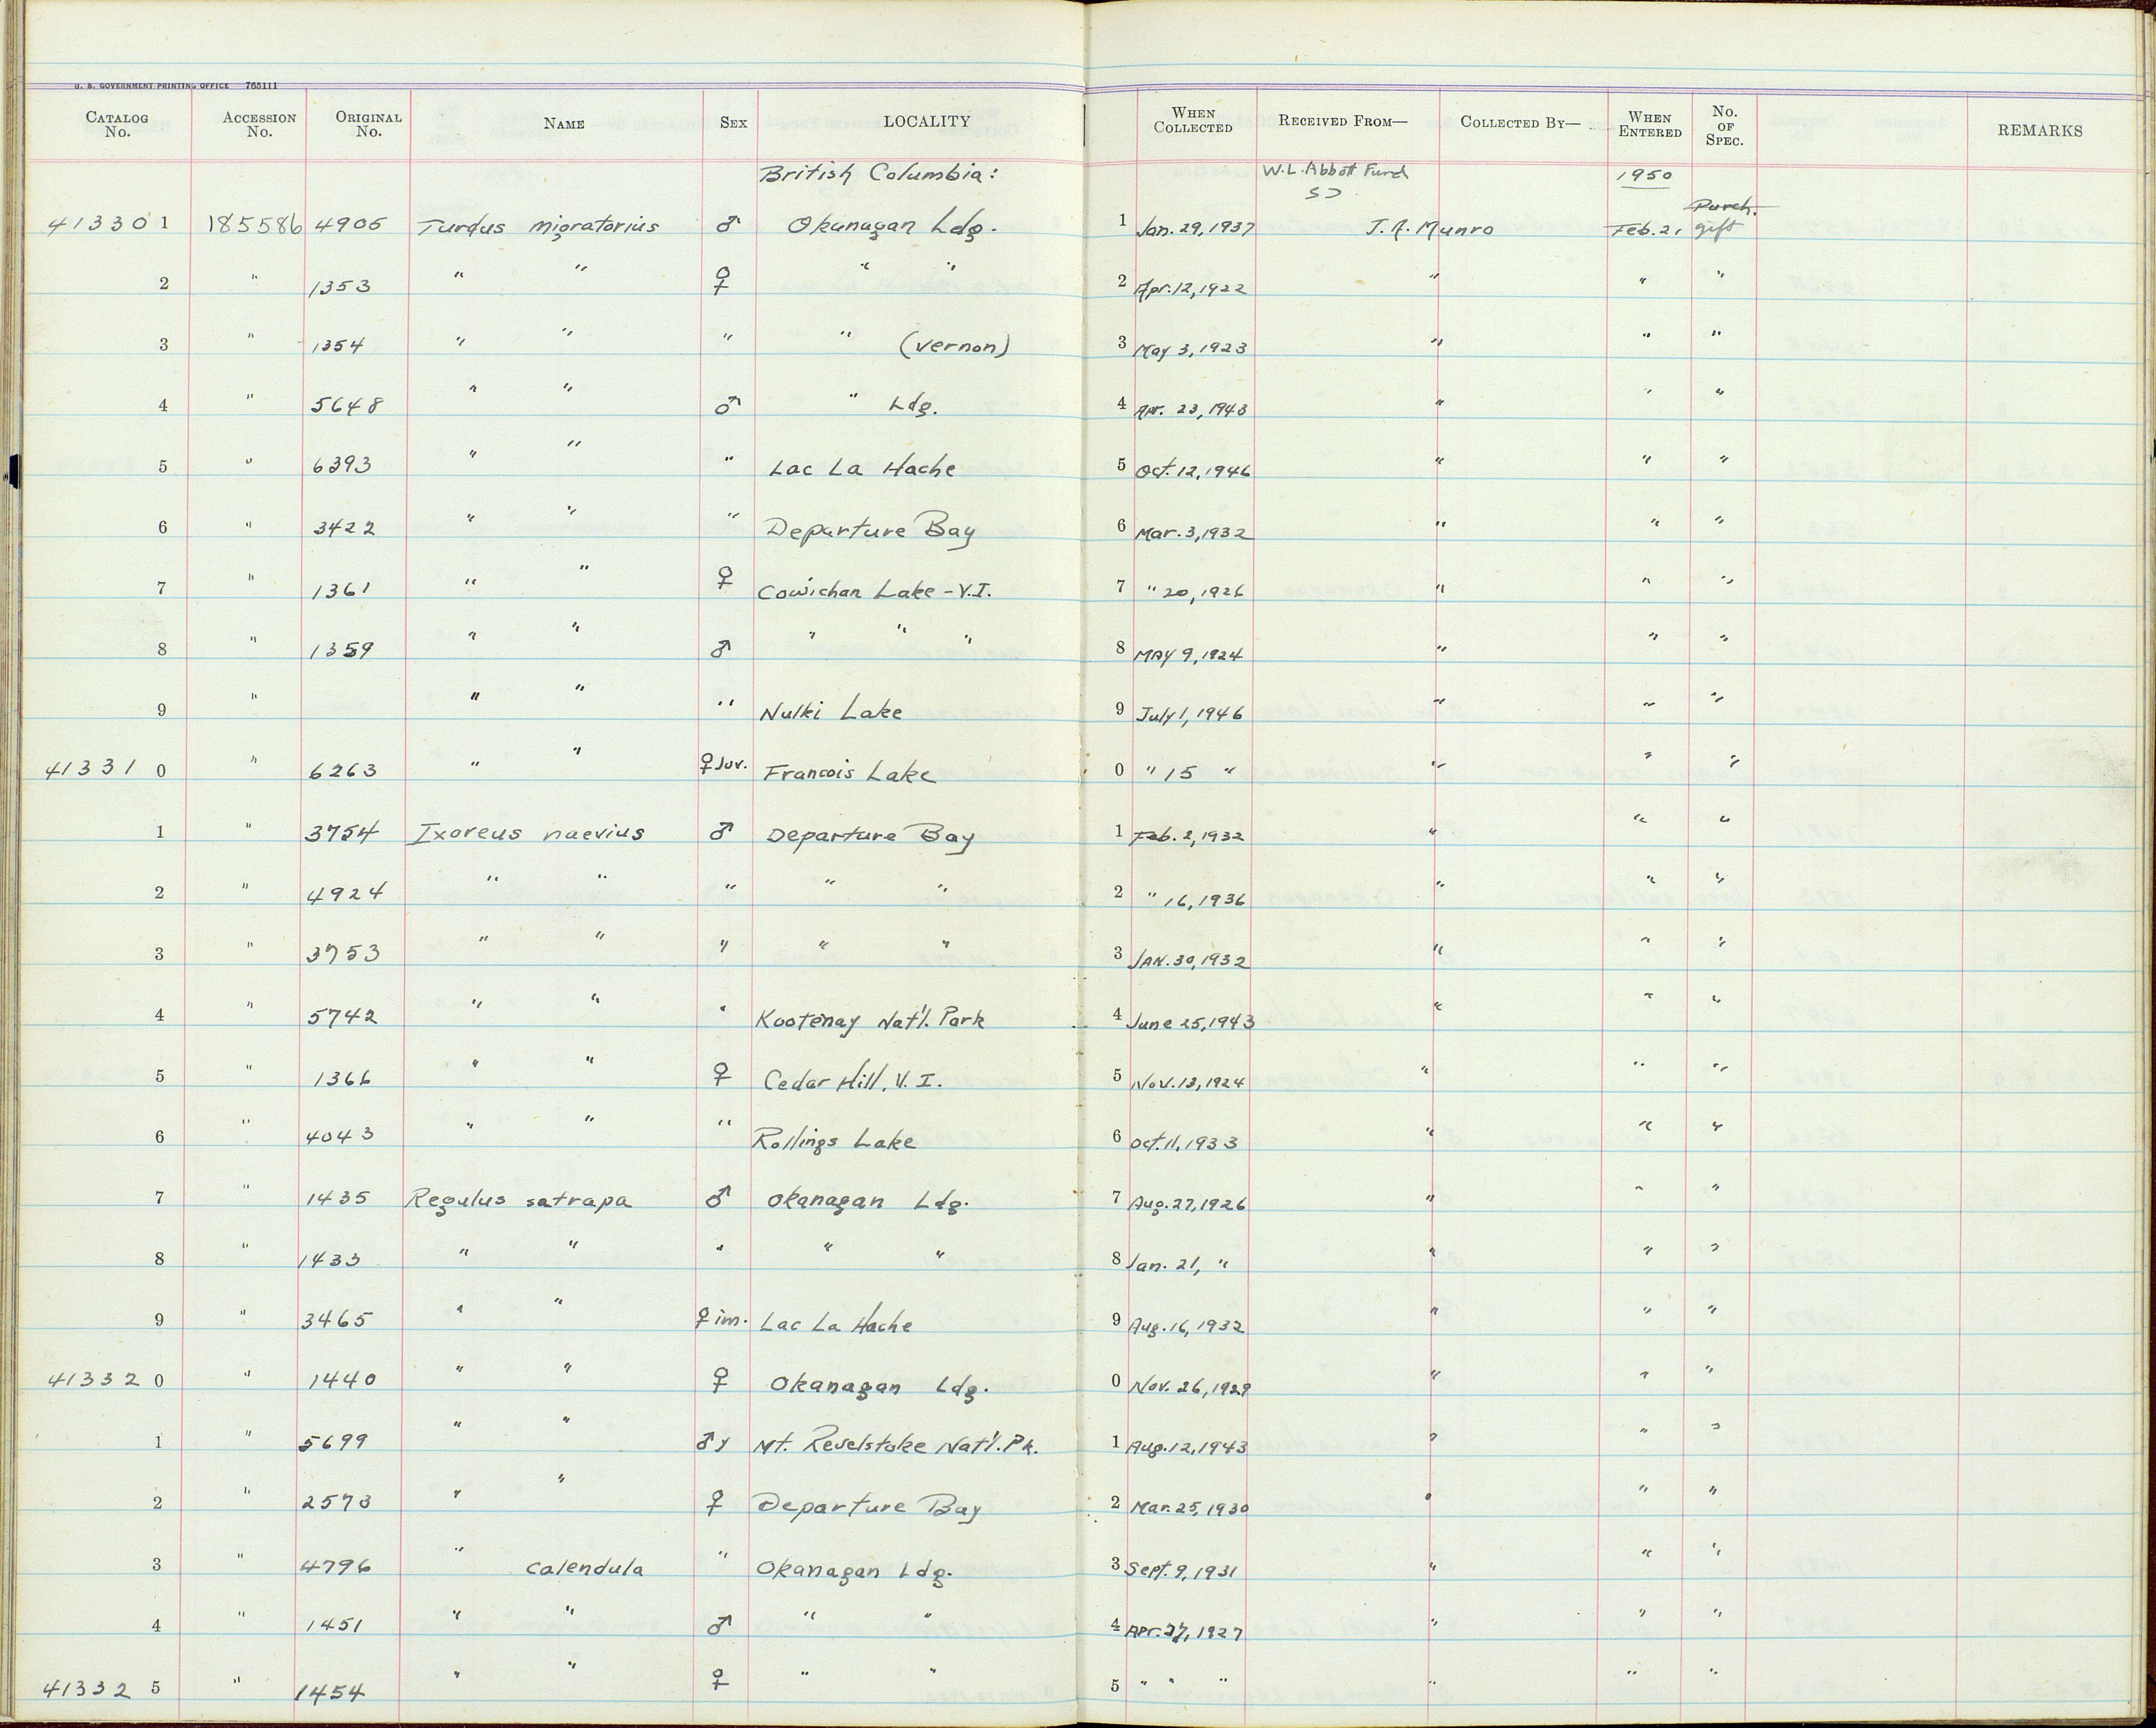 U. S. GOVERNMENT PRINTING OFFICE 765111
CATALOG No. ACCESSION No. ORIGINAL No. NAME SEX LOCALITY WHEN COLLECTED RECEIVED FROM— COLLECTED BY— WHEN ENTERED No. OF SPEC. REMARKS
British Columbia: W.L. Abbott Fund 1950
Purch.
413301 185586 4905 Turdus migratorius ♂ Okanagan Ldg. 1 Jan. 29, 1937 J. A. Munro Feb. 21 gift
2 " 1353 " " ♀ " " 2 Apr. 12, 1922 " " "
3 " 1354 " " " " (Vernon) 3 May 3, 1923 " " "
4 " 5648 " " ♂ " Ldg. 4 Apr. 23, 1943 " " "
5 " 6393 " " " Lac La Hache 5 Oct. 12, 1946 " " "
6 " 3422 " " " Departure Bay 6 Mar. 3, 1932 " " "
7 " 1361 " " ♀ Cowichan Lake - V.I. 7 " 20, 1926 " " "
8 " 1359 " " ♂ " " " 8 May 9, 1924 " " "
9 " " " " Nulki Lake 9 July 1, 1946 " " "
413310 " 6263 " " ♀ Juv. Francois Lake 0 " 15 " " " "
1 " 3754 Ixoreus naevius ♂ Departure Bay 1 Feb. 2, 1932 " " "
2 " 4924 " " " " " 2 " 16, 1936 " " "
3 " 3753 " " " " " 3 Jan. 30, 1932 " " "
4 " 5742 " " " Kootenay Nat'l. Park 4 June 25, 1943 " " "
5 " 1366 " " ♀ Cedar Hill, V. I. 5 Nov. 13, 1924 " " "
6 " 4043 " " " Rollings Lake 6 Oct. 11, 1933 " " "
7 " 1435 Regulus satrapa ♂ Okanagan Ldg. 7 Aug. 27, 1926 " " "
8 " 1433 " " " " " 8 Jan. 21, " " " "
9 " 3465 " " ♀ im. Lac La Hache 9 Aug. 16, 1932 " " "
413320 " 1440 " " ♀ Okanagan Ldg. 0 Nov. 26, 1929 " " "
1 " 5699 " " ♂ y Mt. Revelstoke Nat'l. Pk. 1 Aug. 12, 1943 " " "
2 " 2573 " " ♀ Departure Bay 2 Mar. 25, 1930 " " "
3 " 4796 " calendula " Okanagan Ldg. 3 Sept. 9, 1931 " " "
4 " 1451 " " ♂ " " 4 Apr. 27, 1927 " " "
413325 " 1454 " " ♀ " " 5 " " " " " "